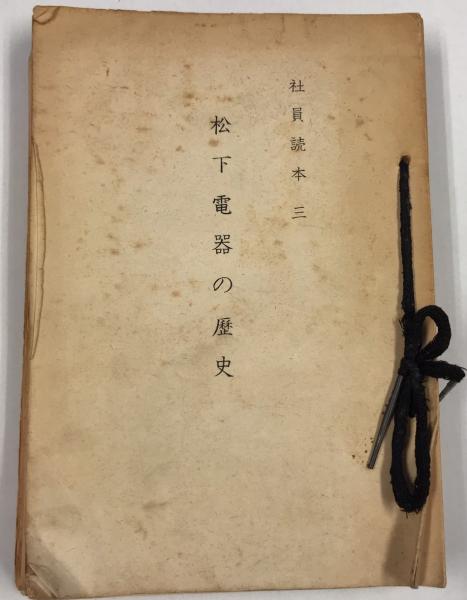 社員読本 三
松下電器の歴史